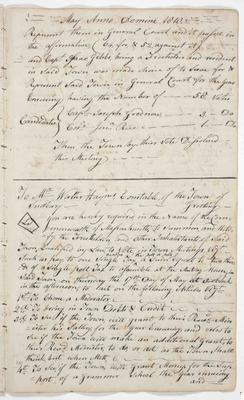 May Anno Domini 1810
Represent them in General Court and it passed in
the affirmative 64 for & 52 against it
and Capt Isaac Gibbs being a Freeholder and resident
in said Town was made choice of to serve for &
Represent said Town in General Court for the year
Ensuing having the Number of 58 Votes
Candidates Capt Joseph Goodnow 3 Do
Esqr 1 Do
Then the Town by their Vote Dissolved
this Meeting
To Mr Walter Haynes Constable of the Town of
Sudbury Greeting
You are hereby required in the Name of the Com-
monwealth of Massachusetts to Summon and Notify
the Freeholders and other Inhabitants of said
Town, Qualified by Law to Vote in Town Meetings
Such as pay to one Single Tax
of a Single poll Tax to assemble at the Meeting House in
said Town on thursday the first Day of May at O'clock
in the afternoon to act on the following Articles
1st To Chuse a Moderator
2d To bring in Town Debts & Credit
3d To see if the Town will grant to their
his Sallery for the Year Ensuing and also to
See if the Town will make an additional Grant to
their Minister &c or act as the Town Shall
think best when Met
4th To See if the Town will Grant Money for the Sup-
port of a Grammar School the year ensuing
and